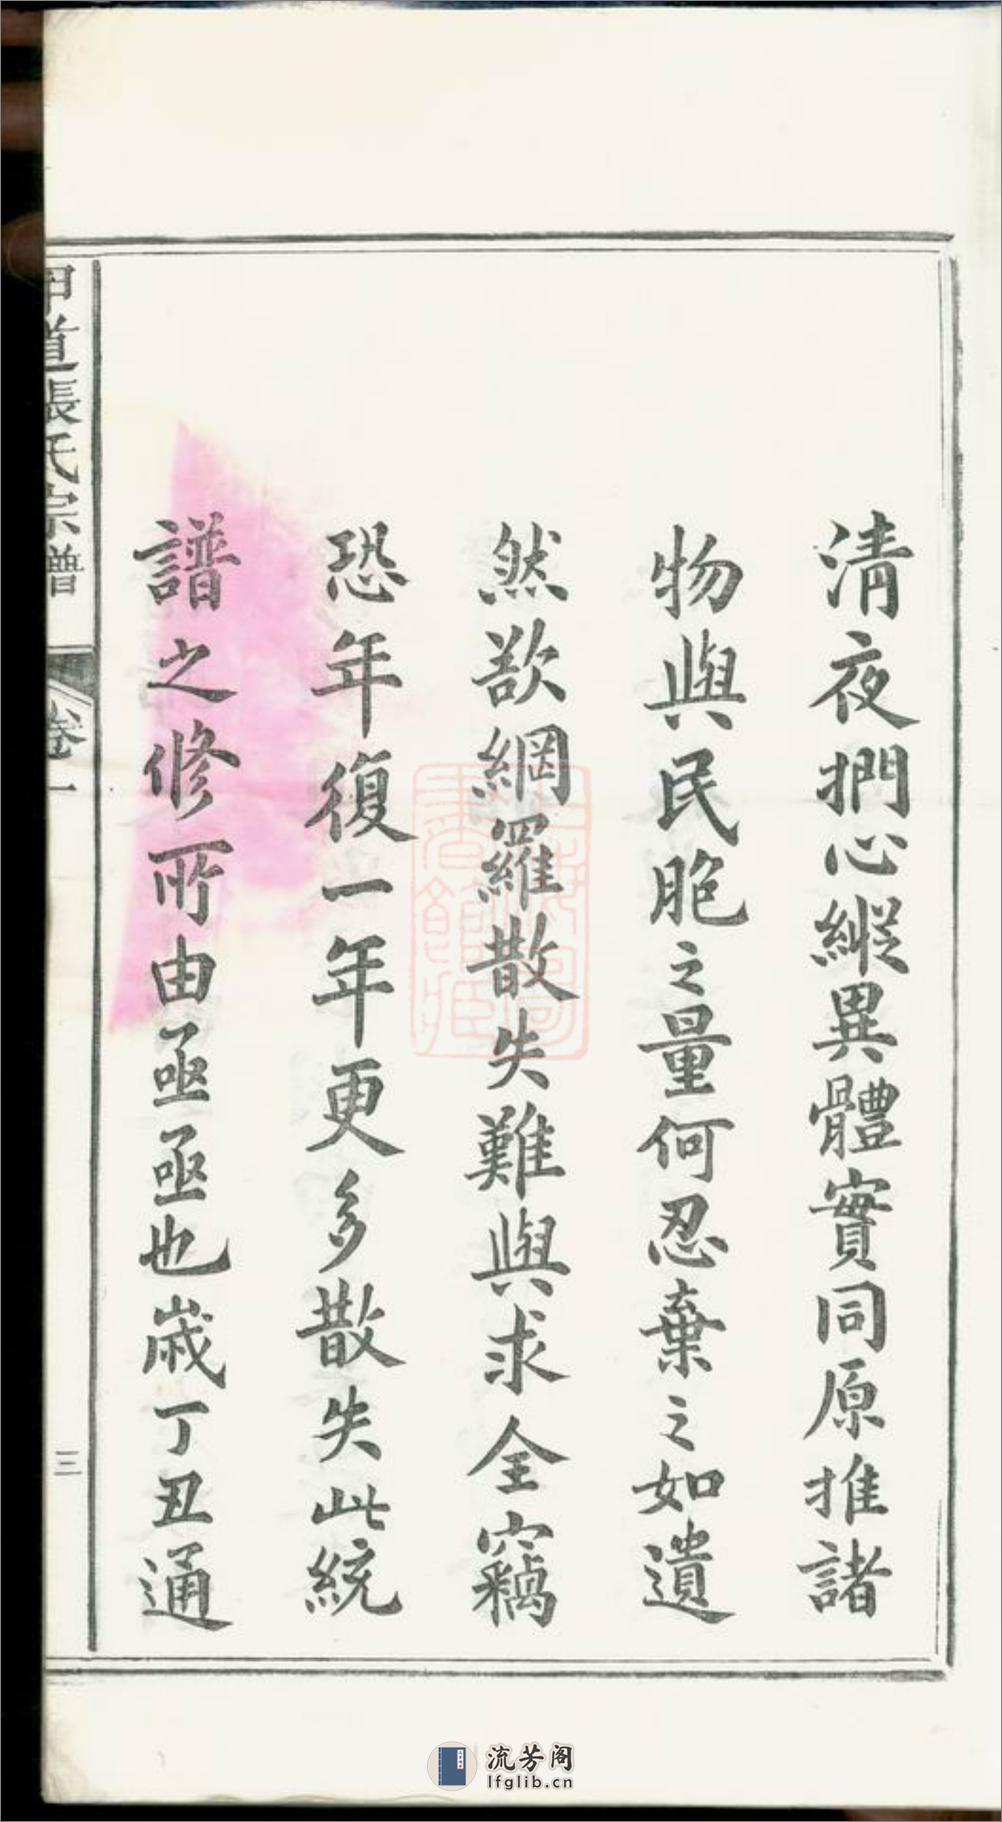 清夜捫心縱異體實同原推諸
物與民胞之量何忍棄之如遺
然欲網羅散失難與求全竊
恐年復一年更多散失此統
譜之修所由亟亟也歲丁丑通
甲道張氏宗譜
卷一
三
流芳阁
lfglib.cn